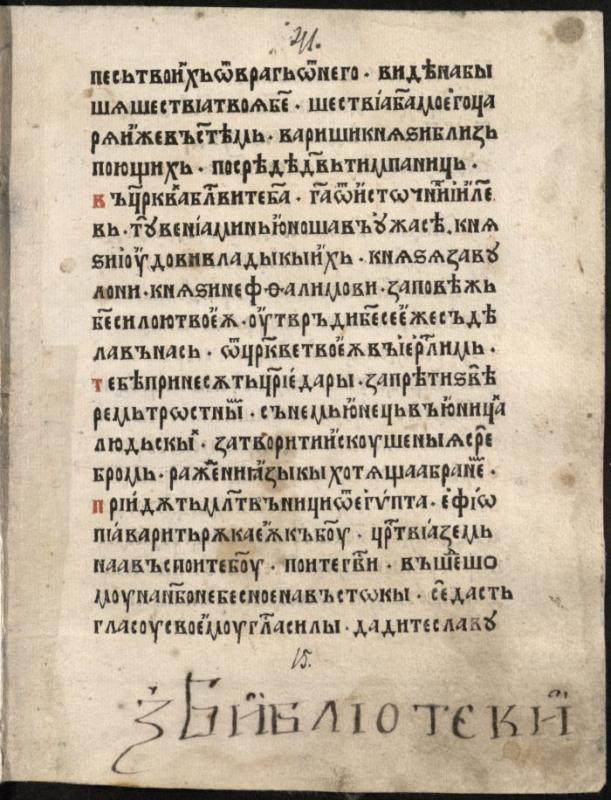 песьтвои́хьѿврагьѿнего · видѣнабы
шѧшествїатвоѧб҃е · шествїаб҃амоегоца
рѧи́жевъст҃ѣмь · варишикнѧѕиблизь
поющихь · посрѣдѣдв҃ьтимпаниць ·
въцр҃квахбл҃витеб҃а · га҃ѿи́сточн҃їкїи҃ле
вь · тꙋ҃венїаминьюношавъꙋжасѣ · кнѧ
ѕиїоу́довивладыкыи́хь · кнѧѕѧзавꙋ
лони · кнѧѕинефѳалимови · заповѣжь
бе҃силоютвоеѫ · оу҆твръдиб҃есее́жесъдѣ
лавънась · ѿцр҃кветвоеѫвъїер҃лимь ·
тебѣпринесѫтьцр҃їедары · запрѣтиѕвѣ
ремьтрѡстны҃м · сънемью́нецьвъю́ница
людьскы · затворитии́скоушеныѧсре
бромь · ражени҃ѧзыкыхотѧщаабране҃м ·
прїи́дѫтьмл҃твъницїиѿегѵпта · ефїѡ
пїаваритьрѫкаеѫ́къбо҃у · цр҃твїаземь
наавъспоитебо҃у · поитегв҃и · въше́шо
моунан҃бонебесноенавъстокы · се́дасть
гласоусвоемоугл҃асилы · дадитеславꙋ
15.
з Библіотеки